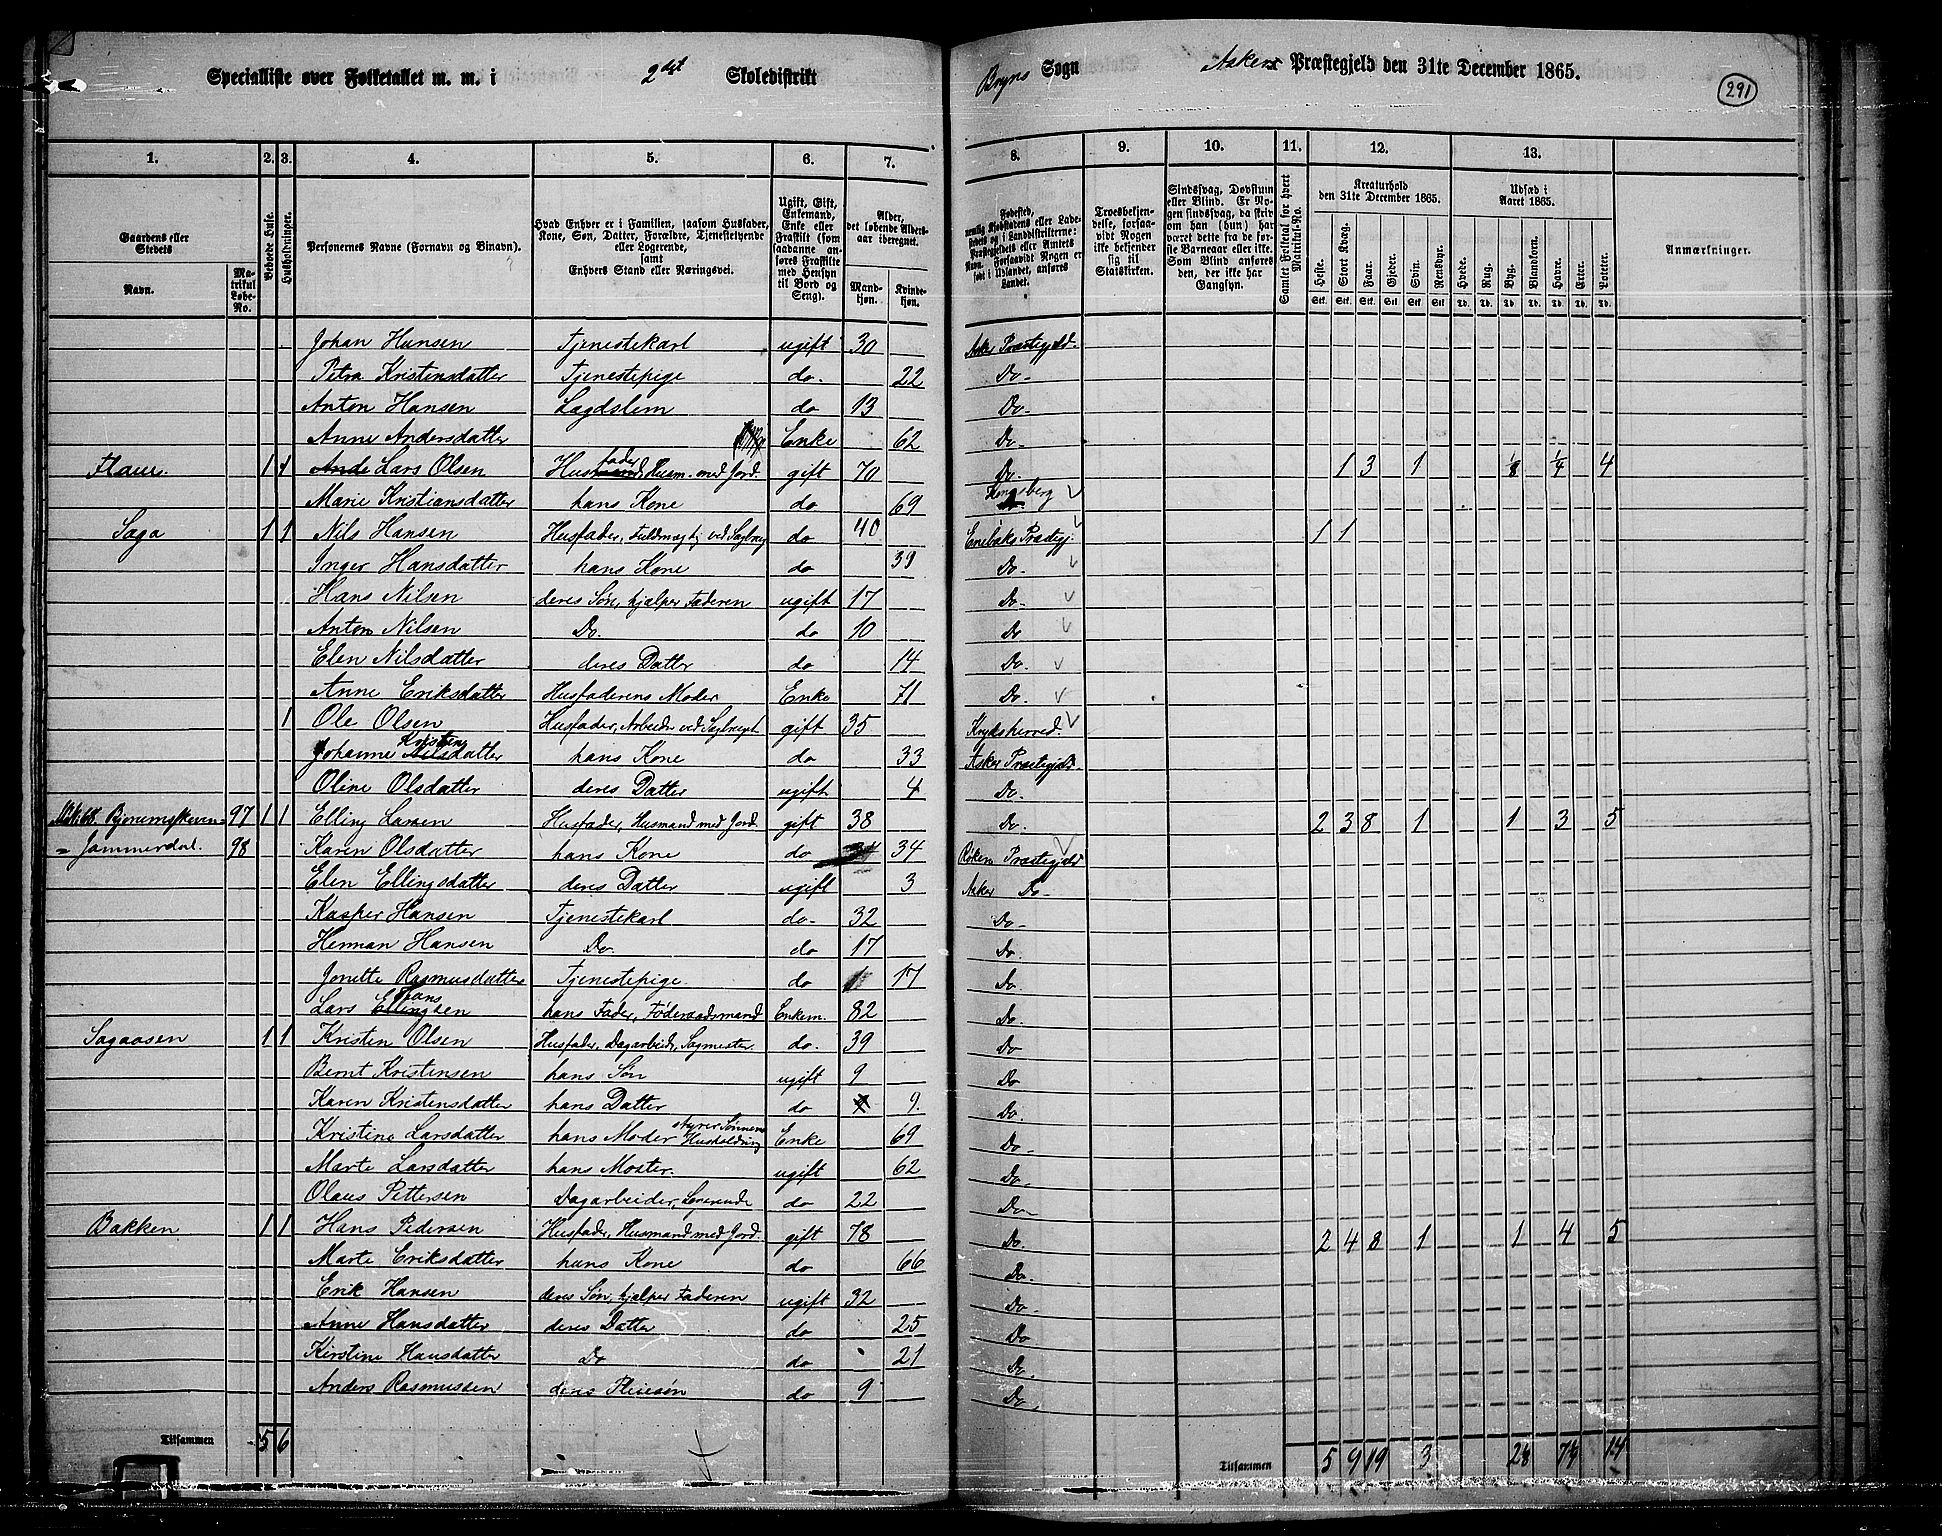 Specialliste over Folketallet m. m. i 2det Skoledistrikt Bryns Sogn Askers Præstegjeld den 31te December 1865.
291
1. 2. 3. 4. 5. 6. 7. 8. 9. 10. 11. 12. 13.
Gaardens eller Stedets Navn.
Matrikul Løbe-No.
Beboede Huse.
Husholdninger.
Personernes Navne (Fornavn og Binavn).
Hvad Enhver er i Familien, saasom Husfader, Kone, Søn, Datter, Forældre, Tjenestetyende eller Logerende, samt Enhvers Stand eller Næringsvei.
Ugift, Gift, Enkemand, Enke eller Fraskilt (som saadanne anføres Fraskilte med Hensyn til Bord og Seng).
Alder, det løbende Aldersaar iberegnet.
Mandkjøn. Kvindekjøn.
Fødested,
Troesbekjendelse, forsaavidt Nogen ikke bekjender sig til Statskirken.
Sindssvag, Døvstum eller Blind. Er Nogen sindssvag, da skriv om han (hun) har været dette fra de første Barneaar eller ikke. Som Blind anføres den, der ikke har Gangsyn.
Samlet Folketal for hvert Matrikul-No.
Kreaturhold den 31te December 1865.
Heste. Stort Kvæg. Faar. Gjeder. Svin. Rensdyr.
Udsæd i Aaret 1865.
Hvede. Rug. Byg. Blandkorn. Havre. Erter. Poteter.
Anmærkninger.
Johan Hansen Tjenestekarl ugift 30 Asker Præstegjeld.
Petra Kristensdatter Tjenestepige do. 22 Do.
Anton Hansen Lægdslem do 13 Do.
Anne Andersdatter Enke 62 Do.
Lars Olsen Husfader, Husm. med Jord. gift 70 Do. 1 3 1 1/8 1/4 4
Marie Kristiansdatter hans Kone do 69 Kongsberg
Saga 1 1 Nils Hansen Husfader, Fuldmægtig ved Sagbrug do 40 Enebaks Præstgj. 1 1
Inger Hansdatter hans Kone do 39 Do.
Hans Nilsen deres Søn, hjælper Faderen ugift 17 Do.
Anton Nilsen Do. do 10 Do
Elen Nilsdatter deres Datter do 14 Do.
Anne Eriksdatter Husfaderens Moder Enke 71 Do.
1 Ole Olsen Husfader, Arbeider ved Sagbruget gift 35 Krydsherred.
Johanne Kristensdatter hans Kone do 33 Asker Præstegjeld.
Oline Olsdatter deres Datter ugift 4 Do.
Bjerumskeven 97 1 1 Elling Larsen Husfader, Husmand med Jord. gift 38 Do. 2 3 8 1 1 3 5
= Jammerdal. 98 Karen Olsdatter hans Kone do 34 Røken Præstegjeld
Elen Ellingsdatter deres Datter ugift 3 Asker Do
Kasper Hansen Tjenestekarl do. 32 Do.
Herman Hansen Do. do 17 Do.
Jonette Rasmusdatter Tjenestepige. do 17 Do.
Lars Hansen hans Fader, Føderaadsmand Enkem. 82 Do.
Sagaasen 1 1 Kristen Olsen Husfader, Dagarbeider, Sagmester. do. 39 Do
Bernt Kristensen hans Søn ugift 9 Do
Karen Kristensdatter hans Datter do 9. Do.
Kristine Larsdatter hans Moder styrer Sønnens Husholdning Enke 69 Do.
Marte Larsdatter hans Moster. ugift 62 Do.
Olaus Pettersen Dagarbeider, Logerende do 22 Do
Bakken 1 1 Hans Pedersen Husfader, Husmand med Jord. gift 78 Do. 2 4 8 1 1 4 5
Marte Eriksdatter hans Kone do 66 Do.
Erik Hansen deres Søn, hjælper Faderen ugift 32 Do.
Anne Hansdatter deres Datter do 25 Do
Kirstine Hansdatter Do do 21 Do.
Anders Rasmussen deres Pleiesøn do 9 Do.
Tilsammen 5 6 Tilsammen 5 9 19 3 14